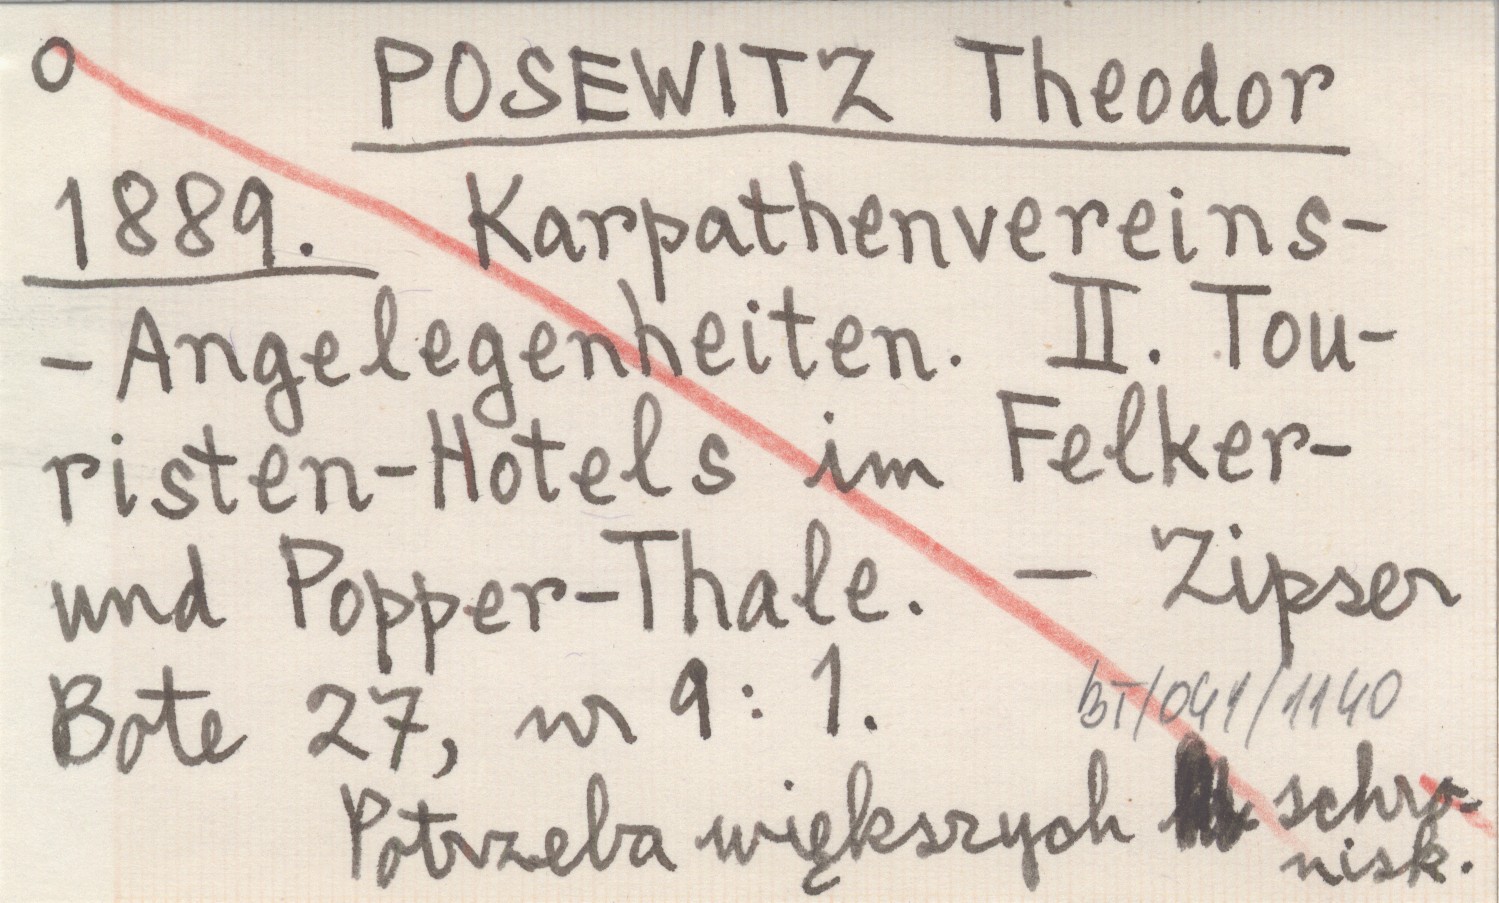 O POSEWITZ Theodor
1889. Karpathenvereins-
-Angelegenheiten. II. Tou-
risten-Hotels im Felker-
und Popper-Thale. — Zipser
Bote 27, nr 9: 1.
BT/041/1140
Potrzeba większych schro-
nisk.